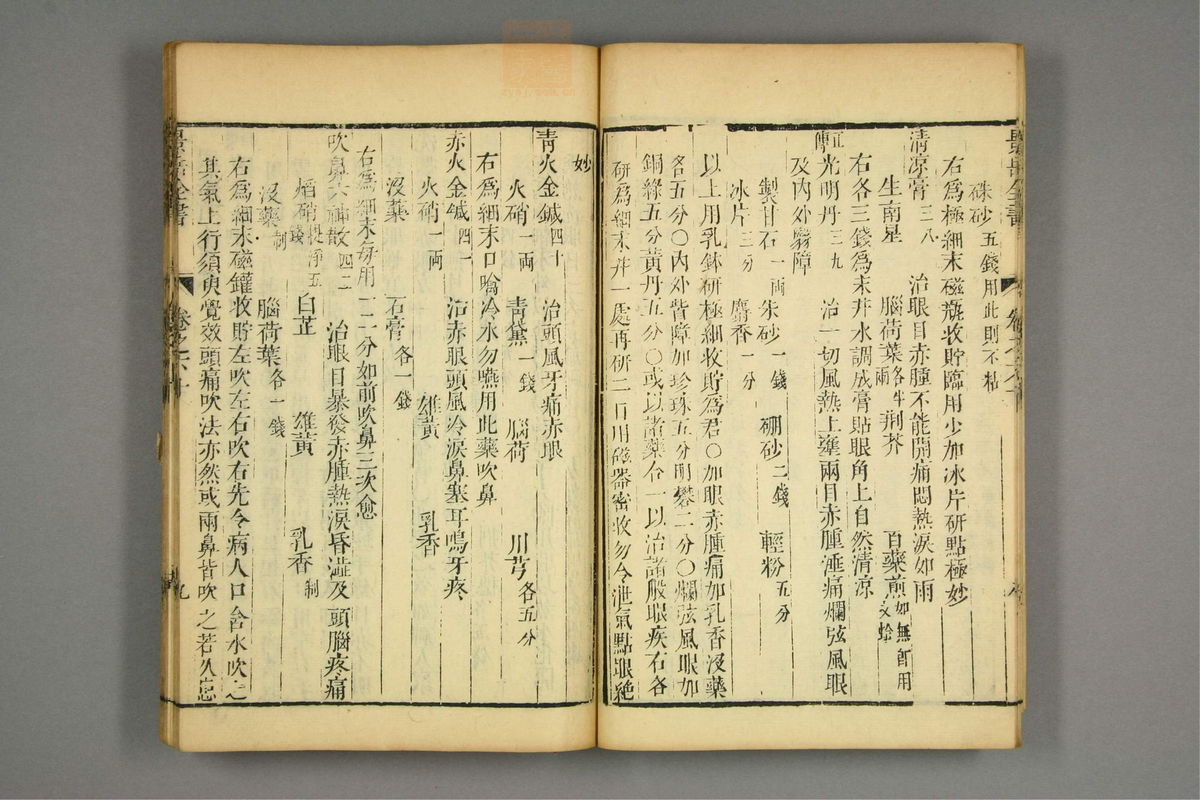 景岳全書
硃砂五錢用此則不粘
右爲極細末磁瓶收貯臨用少加冰片硏點極妙
清凉膏三八 治眼目赤腫不能開痛悶熱淚如雨
生南星 腦荷葉各半兩 荆芥 百藥煎如無即用文蛤
右各三錢爲末井水調成膏貼眼角上自然清凉
光明丹三九 治一切風熱上壅兩目赤腫澀痛爛弦風眼
及內外翳障
製甘石一兩 朱砂一錢 硼砂二錢 輕粉五分
冰片三分 麝香一分
以上用乳鉢硏極細收貯爲君○加眼赤腫痛加乳香沒藥
各五分○內外眥障加珍珠五分明礬二分○爛弦風眼加
銅綠五分黃丹五分○或以諸藥合一以治諸般眼疾右各
硏爲細末并一處再硏二日用磁器密收勿令泄氣點眼絕
妙
青火金鍼四十 治頭風牙痛赤眼
火硝一兩 青黛一錢 腦荷 川芎各五分
右爲細末口噙冷水勿嚥用此藥吹鼻
赤火金鍼四一 治赤眼頭風冷淚鼻塞耳鳴牙疼
火硝一兩 雄黃 乳香
沒藥 石膏各一錢
右爲細末每用一二分如前吹鼻三次愈
吹鼻六神散四二 治眼目暴發赤腫熱淚昏澁及頭腦疼痛
焰硝提淨五錢 白芷 雄黃 乳香制
沒藥制 腦荷葉各一錢
右爲細末磁罐收貯左吹左右吹右先令病人口含水吹之
其氣上行須臾覺效頭痛吹法亦然或兩鼻皆吹之若久患
景岳全書
卷之六十
九